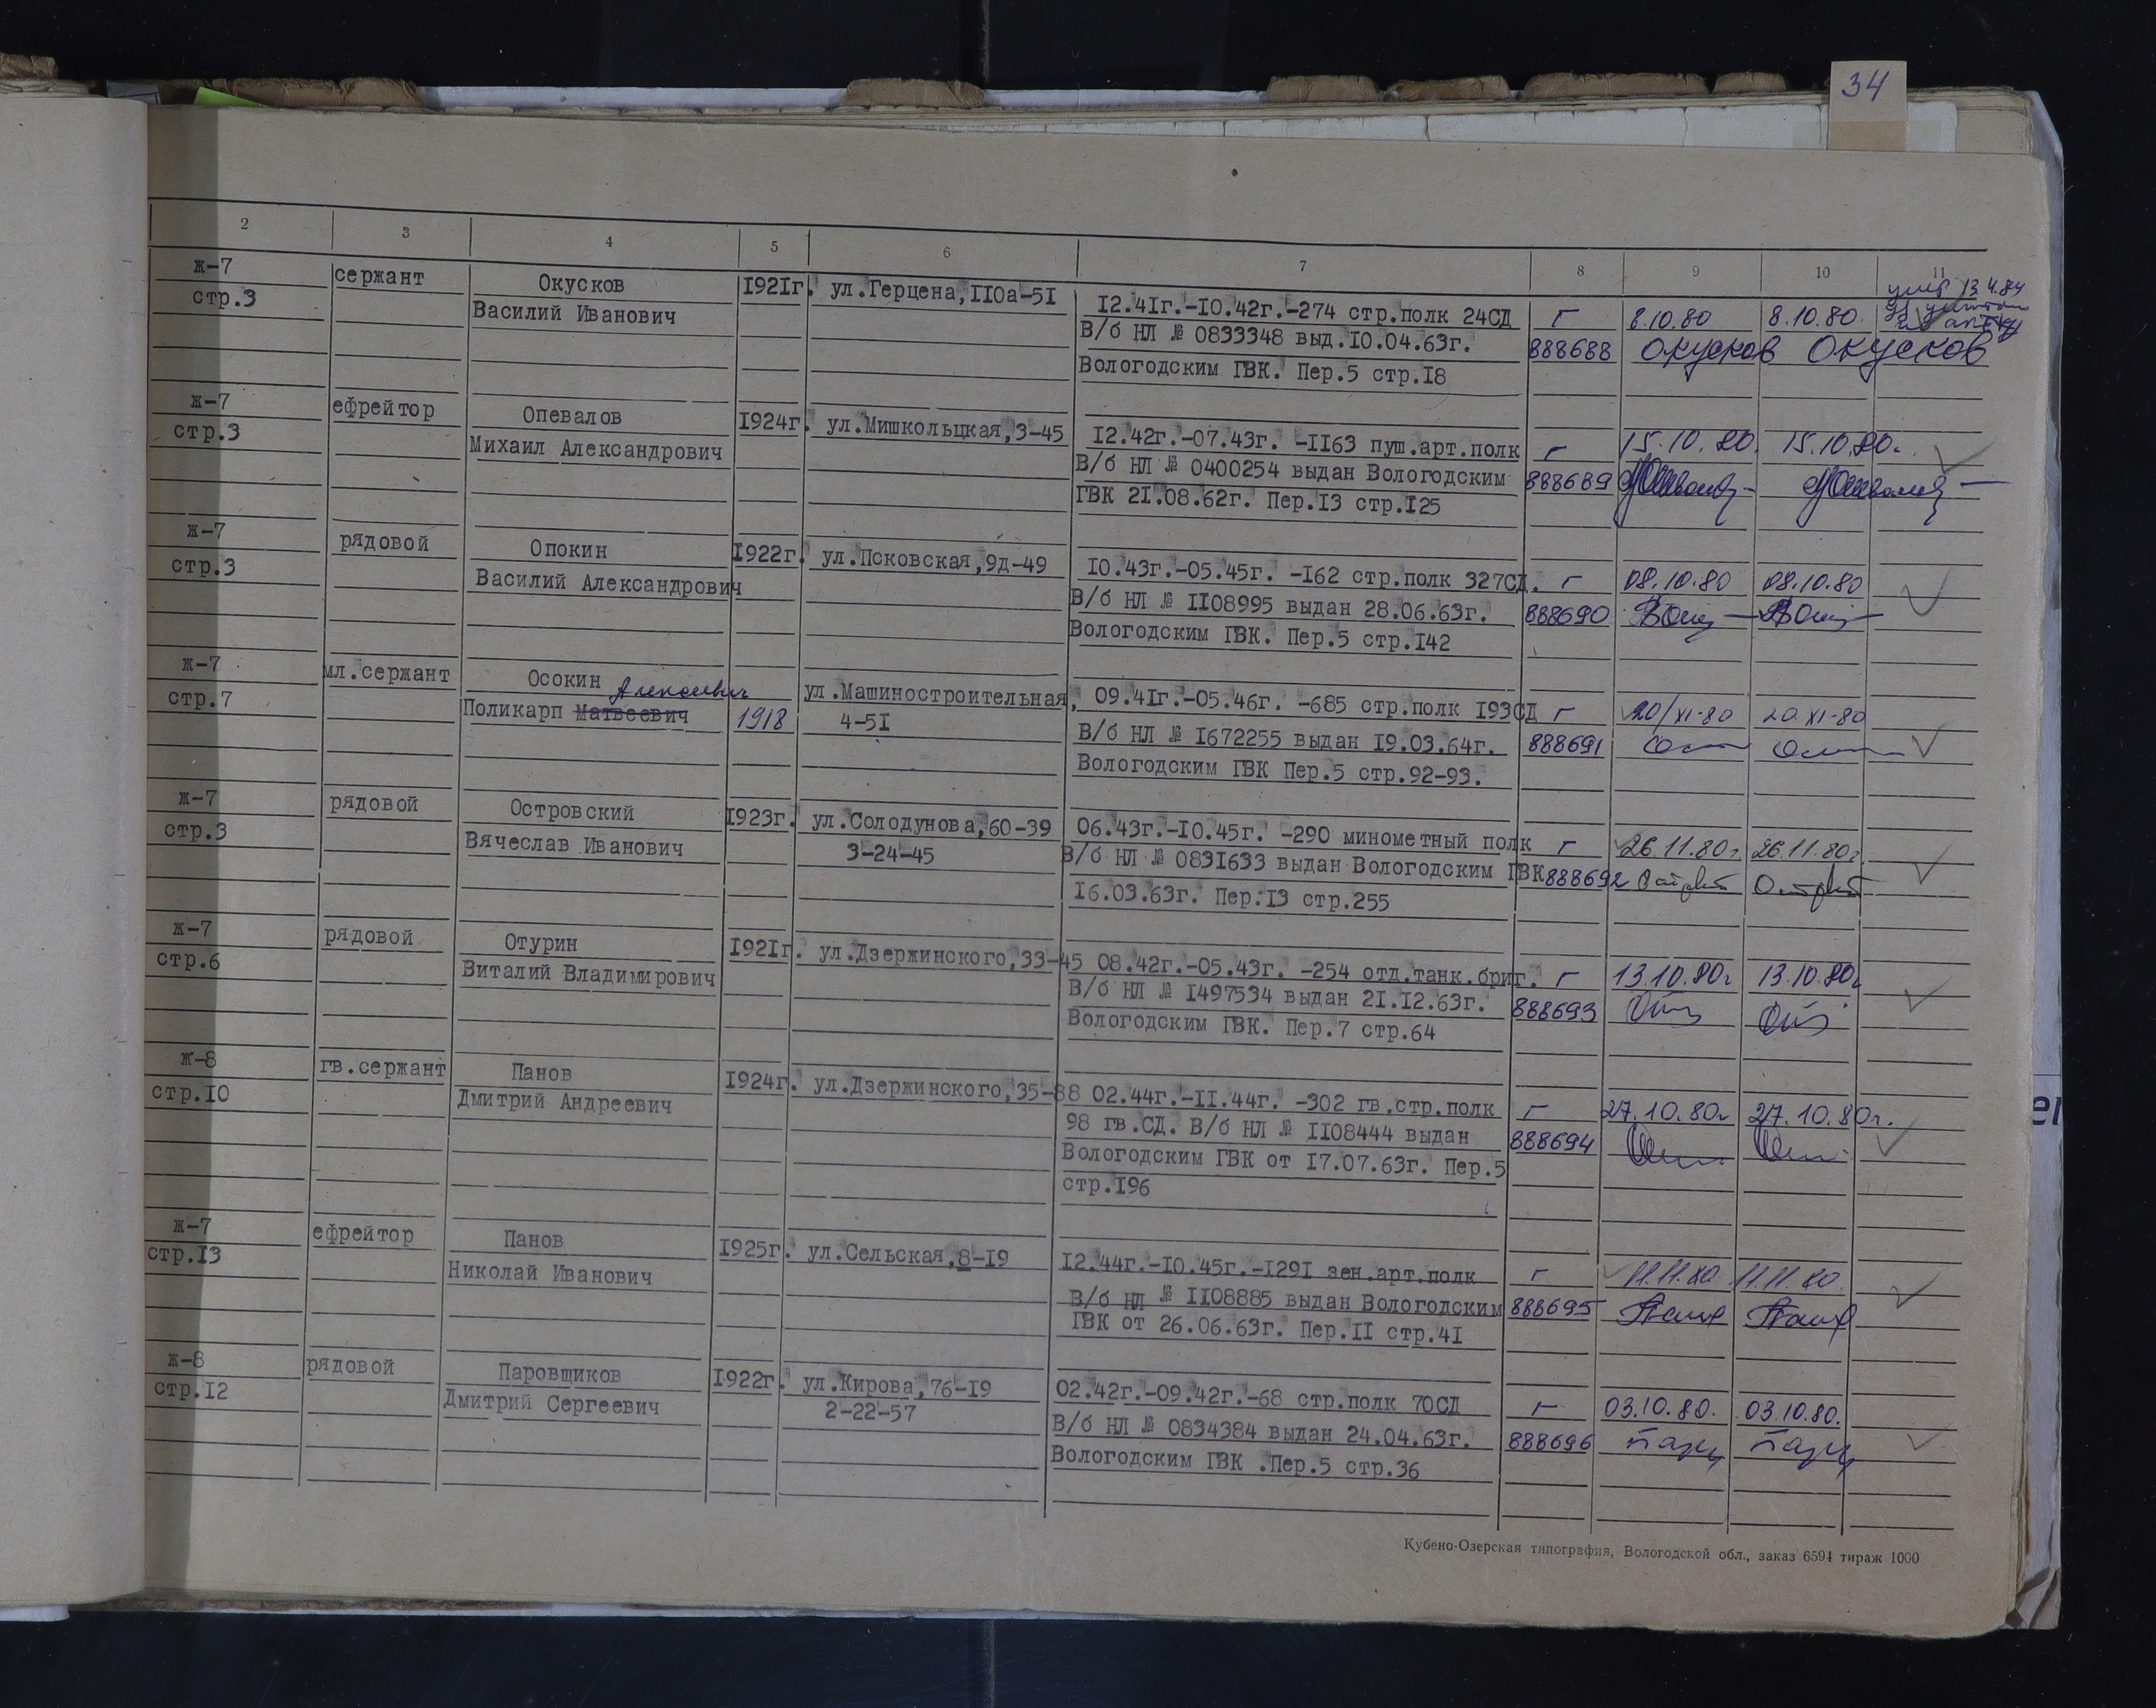 34
2 3 4 5 6 7 8 9 10 11
ж-7 сержант Окусков 1921г. ул.Герцена,110а-51 12.41г.-10.42г.-274 стр.полк 24СД г 8.10.80 8.10.80 умер 13.4.84
стр.3 Василий Иванович В/б НЛ № 0833348 выд.10.04.63г. 888688 Окусков Окусков
Вологодским ГВК. Пер.5 стр.18
ж-7 ефрейтор Опевалов 1924г. ул.Мишкольцкая,3-45 12.42г.-07.43г. -1163 пуш.арт.полк г 15.10.80. 15.10.80г.
стр.3 Михаил Александрович В/б НЛ № 0400254 выдан Вологодским 888689
ГВК 21.08.62г. Пер.13 стр.125
ж-7 рядовой Опокин 1922г. ул.Псковская,9д-49 10.43г.-05.45г. -162 стр.полк 327СД. г 08.10.80 08.10.80
стр.3 Василий Александрович В/б НЛ № 1108995 выдан 28.06.63г. 888690
Вологодским ГВК. Пер.5 стр.142
ж-7 мл.сержант Осокин Алексеевич ул.Машиностроительная, 09.41г.-05.46г. -685 стр.полк 193СД г 20/XI-80 20.XI-80
стр.7 Поликарп Матвеевич 1918 4-51 В/б НЛ № 1672255 выдан 19.03.64г. 888691
Вологодским ГВК Пер.5 стр.92-93.
ж-7 рядовой Островский 1923г. ул.Солодунова,60-39 06.43г.-10.45г. -290 минометный полк г 26.11.80г. 26.11.80г.
стр.3 Вячеслав Иванович 3-24-45 В/б НЛ № 0831633 выдан Вологодским ГВК 888692
16.03.63г. Пер.13 стр.255
ж-7 рядовой Отурин 1921г. ул.Дзержинского,33-45 08.42г.-05.43г. -254 отд.танк.бриг. г 13.10.80г 13.10.80г
стр.6 Виталий Владимирович В/б НЛ № 1497534 выдан 21.12.63г. 888693
Вологодским ГВК. Пер.7 стр.64
ж-8 гв.сержант Панов 1924г. ул.Дзержинского,35-88 02.44г.-11.44г. -302 гв.стр.полк г 27.10.80г 27.10.80г.
стр.10 Дмитрий Андреевич 98 гв.СД. В/б НЛ № 1108444 выдан 888694
Вологодским ГВК от 17.07.63г. Пер.5
стр.196
ж-7 ефрейтор Панов 1925г. ул.Сельская,8-19 12.44г.-10.45г.-1291 зен.арт.полк г 11.11.80 11.11.80.
стр.13 Николай Иванович В/б НЛ № 1108885 выдан Вологодским 888695
ГВК от 26.06.63г. Пер.11 стр.41
ж-8 рядовой Паровщиков 1922г. ул.Кирова,76-19 02.42г.-09.42г.-68 стр.полк 70СД г 03.10.80. 03.10.80.
стр.12 Дмитрий Сергеевич 2-22-57 В/б НЛ № 0834384 выдан 24.04.63г. 888696
Вологодским ГВК .Пер.5 стр.36
Кубено-Озерская типография, Вологодской обл., заказ 6594 тираж 1000